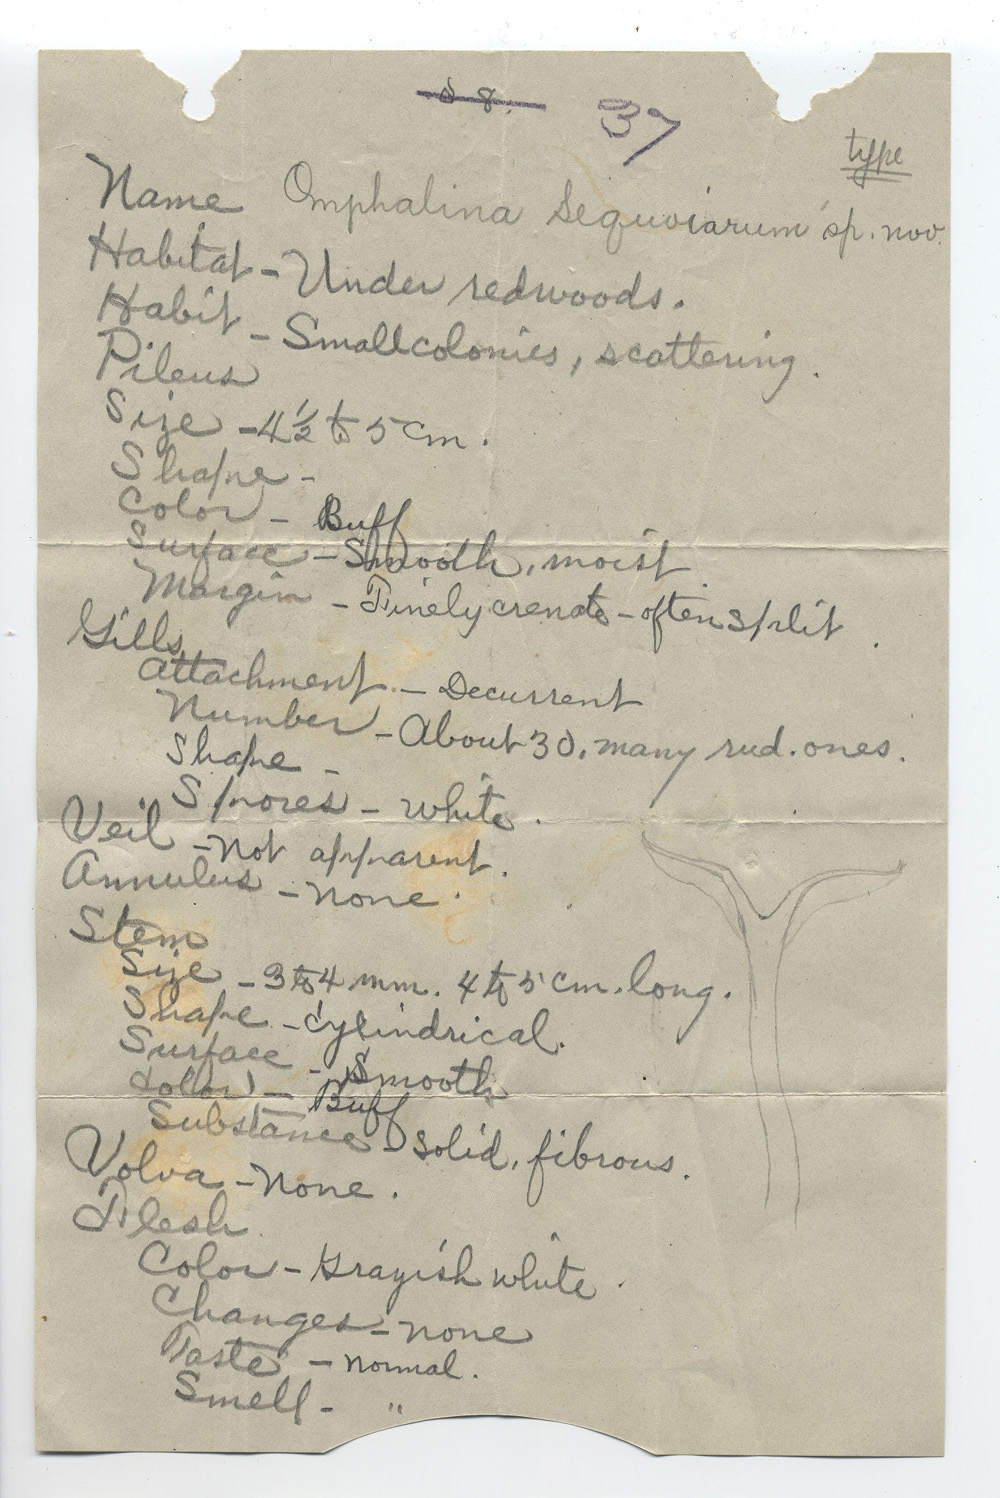 37
type
Name Omphalina Sequoiarum sp. nov.
Habitat - Under redwoods.
Habit - Small colonies, scattering.
Pileus
Size - 4½ to 5 cm.
Shape -
Color - Buff
Surface - Smooth, moist
Margin - Finely crenate - often split.
Gills
Attachment - Decurrent
Number - About 30, many rud. ones.
Shape -
Spores - white.
Veil - Not apparent.
Annulus - none.
Stem
Size - 3 to 4 mm. 4 to 5 cm. long.
Shape - Cylindrical.
Surface - Smooth
Color - Buff
Substance - Solid, fibrous.
Volva - None.
Flesh
Color - Grayish white.
Changes - none
Taste - Normal.
Smell - "